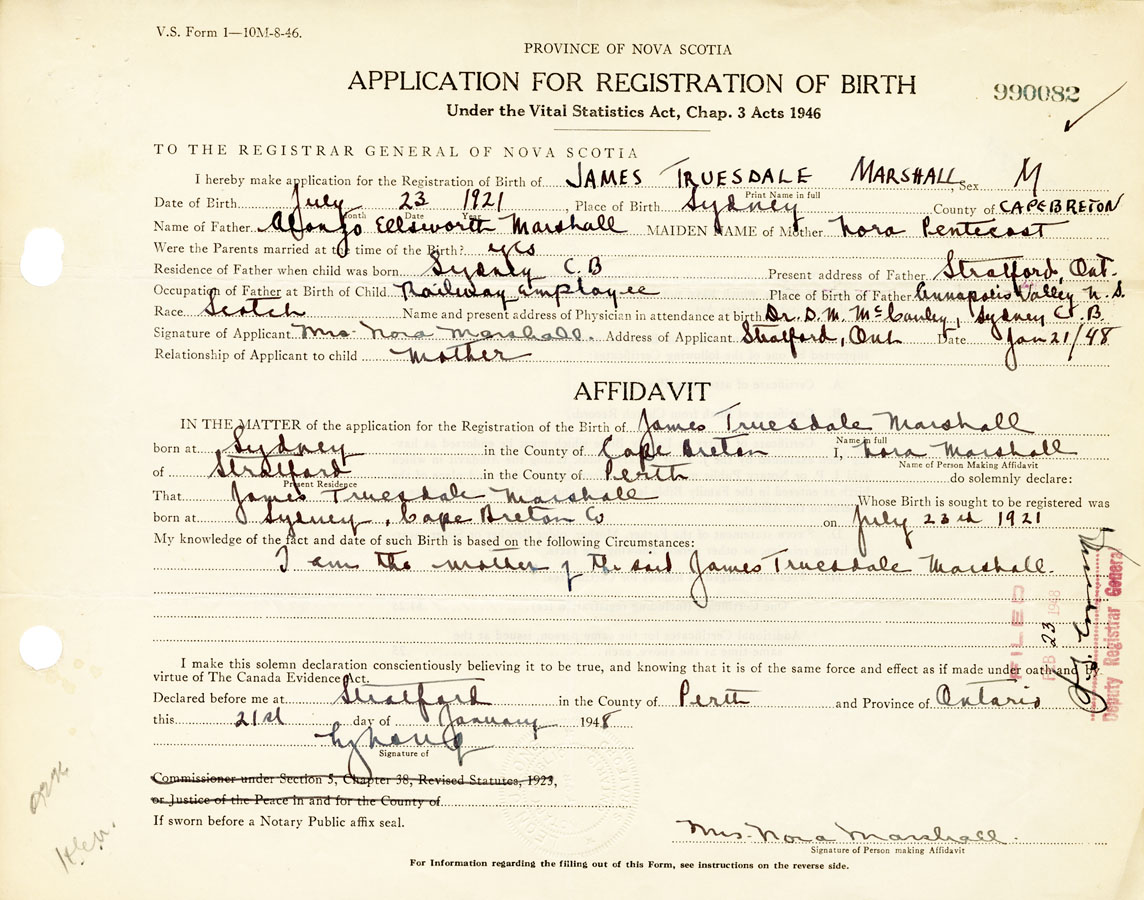 V.S. Form 1—10M-8-46.
PROVINCE OF NOVA SCOTIA
APPLICATION FOR REGISTRATION OF BIRTH
990082
Under the Vital Statistics Act, Chap. 3 Acts 1946
TO THE REGISTRAR GENERAL OF NOVA SCOTIA
I hereby make application for the Registration of Birth of JAMES TRUESDALE MARSHALL, Sex M
Print Name in full
Date of Birth July 23 1921, Place of Birth Sydney County of CAPE BRETON
Month Date Year
Name of Father Alonzo Ellsworth Marshall MAIDEN NAME of Mother Nora Pentecost
Were the Parents married at the time of the Birth? yes
Residence of Father when child was born Sydney C.B Present address of Father Stratford, Ont.
Occupation of Father at Birth of Child Railway employee Place of birth of Father Annapolis Valley N.S.
Race Scotch Name and present address of Physician in attendance at birth Dr. D. M. McCauley, Sydney C.B.
Signature of Applicant Mrs. Nora Marshall. Address of Applicant Stratford, Ont Date Jan 21/48
Relationship of Applicant to child mother
AFFIDAVIT
IN THE MATTER of the application for the Registration of the Birth of James Truesdale Marshall
Name in full
born at Sydney in the County of Cape Breton I, Nora Marshall
Name of Person Making Affidavit
of Stratford in the County of Perth do solemnly declare:
Present Residence
That James Truesdale Marshall Whose Birth is sought to be registered was
born at Sydney, Cape Breton Co on July 23rd 1921
My knowledge of the fact and date of such Birth is based on the following Circumstances:
I am the mother of the said James Truesdale Marshall.
I make this solemn declaration conscientiously believing it to be true, and knowing that it is of the same force and effect as if made under oath and by
virtue of The Canada Evidence Act.
Declared before me at Stratford in the County of Perth and Province of Ontario
this 21st day of January 1948
Signature of
Commissioner under Section 5, Chapter 38, Revised Statutes, 1923,
or Justice of the Peace in and for the County of
If sworn before a Notary Public affix seal.
Mrs. Nora Marshall.
Signature of Person making Affidavit
For Information regarding the filling out of this Form, see instructions on the reverse side.
FILED
FEB 23 1948
Deputy Registrar General